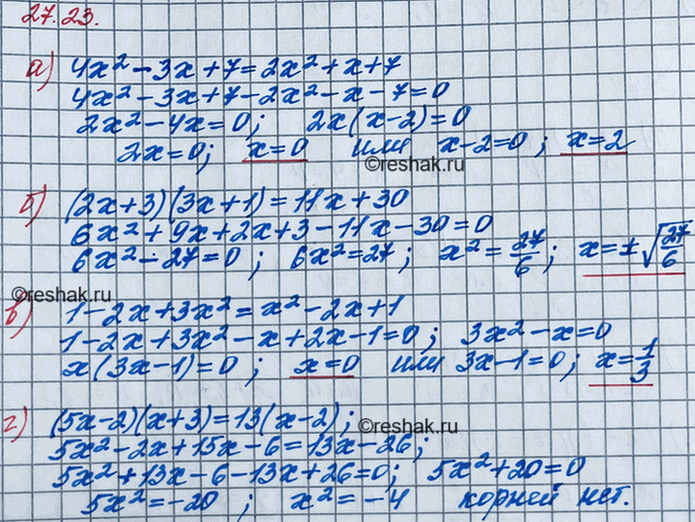 27.23.
а) 4x² - 3x + 7 = 2x² + x + 7
4x² - 3x + 7 - 2x² - x - 7 = 0
2x² - 4x = 0; 2x(x - 2) = 0
2x = 0; x = 0 или x - 2 = 0; x = 2
©reshak.ru
б) (2x + 3)(3x + 1) = 11x + 30
6x² + 9x + 2x + 3 - 11x - 30 = 0
6x² - 27 = 0; 6x² = 27; x² = 27/6; x = ±√27/6
©reshak.ru
в) 1 - 2x + 3x² = x² - 2x + 1
1 - 2x + 3x² - x + 2x - 1 = 0; 3x² - x = 0
x(3x - 1) = 0; x = 0 или 3x - 1 = 0; x = 1/3
г) (5x - 2)(x + 3) = 13(x - 2);
©reshak.ru
5x² - 2x + 15x - 6 = 13x - 26;
5x² + 13x - 6 - 13x + 26 = 0; 5x² + 20 = 0
5x² = -20; x² = -4 корней нет.